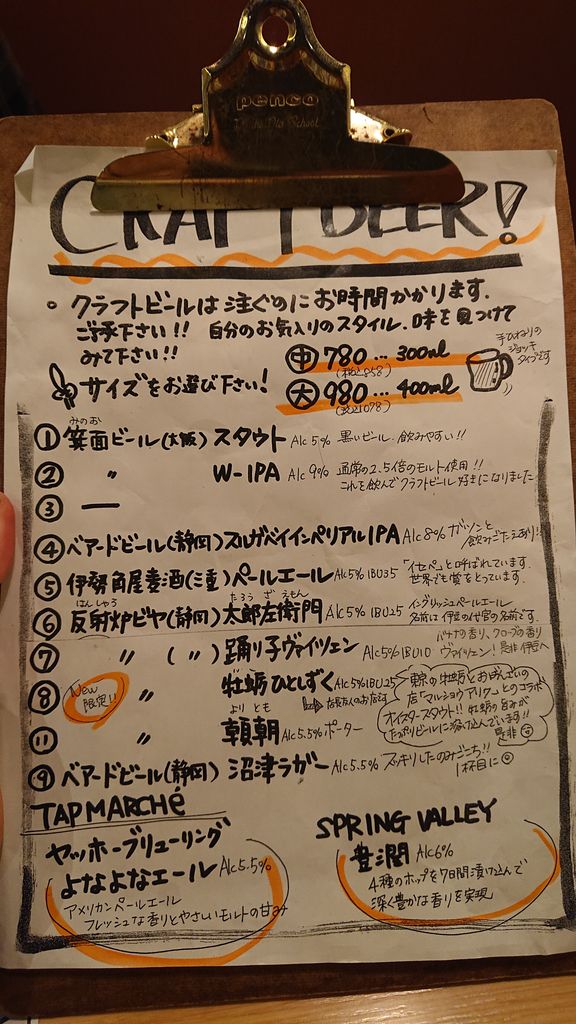 penco
CRAFT BEER!
。クラフトビールは注ぐのにお時間かかります。
ご了承下さい!! 自分のお気入りのスタイル、味を見つけて
みて下さい!!
サイズをお選び下さい!
中 780… 300ml
(税込858)
大 980… 400ml
(税込1078)
手びねりの
ジョッキ
タイプです
① 箕面ビール(大阪) スタウト Alc5% 黒いビール。飲みやすい!!
みのお
② 〃 W-IPA Alc9% 通常の2.5倍のモルト使用!!
これを飲んでクラフトビール好きになりました
③ ー
④ ベアードビール(静岡) スルガベイインペリアルIPA Alc8% ガツンと
飲みごたえあり!!
⑤ 伊勢角屋麦酒(三重) ペールエール Alc5% IBU35 「イセペ」と呼ばれています。
世界でも賞をとっています。
⑥ 反射炉ビヤ(静岡) 太郎左衛門 Alc5% IBU25 イングリッシュペールエール
はんしゃろ たろう ざ えもん
名前は伊豆の代官の名前です。
⑦ 〃 (〃) 踊り子ヴァイツェン Alc5% IBU10 バナナの香り、クローブの香り
ヴァイツェン! 是非伊豆へ
⑧ New 限定!! 〃 牡蛎ひとしずく Alc5% IBU25
店長友人のお店です
の牡蛎とおばんざいの
店「マルショウアリク」とのコラボ
オイスタースタウト!! 牡蛎の旨みが
たっぷりビールに溶け込んでいます!!
是非
⑪ 〃 頼朝 Alc5.5% ポーター
よりとも
⑨ ベアードビール(静岡) 沼津ラガー Alc5.5% スッキリしたのみごこち!!
1杯目に
TAPMARCHé
ヤッホーブリューリング
よなよなエール Alc5.5%
アメリカンペールエール
フレッシュな香りとやさしいモルトの甘み
SPRING VALLEY
豊潤 Alc6%
4種のホップを7日間漬け込んで
深く豊かな香りを実現